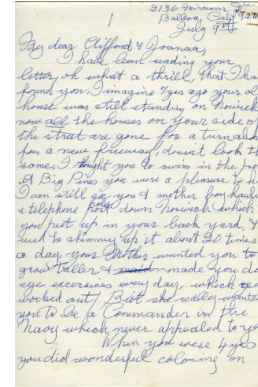 2136 Fairmount
1 Balboa, Cal. 920
July 9th
My dear Clifford & Joanna,
I have been reading your
letter, oh what a thrill, that I ha
found you. I imagine yes ago your ol
house was still standing on
now all the houses on your side of
the street are gone for a turnabo
for a new freeway, doesnt look th
same. I taught you to swim in the po
at Big Pines you were a pleasure to h
I can still see you & another boy haulin
a telephone post down which
you put up in your back yard, &
used to shimmy up it about 20 times
a day, your Mother wanted you to
grow taller & made you do
eye exercises every day, which
worked out. But she really wanted
you to be a Commander in the
Navy which never appealed to yo
When you were 4 yrs
you did wonderful coloring on